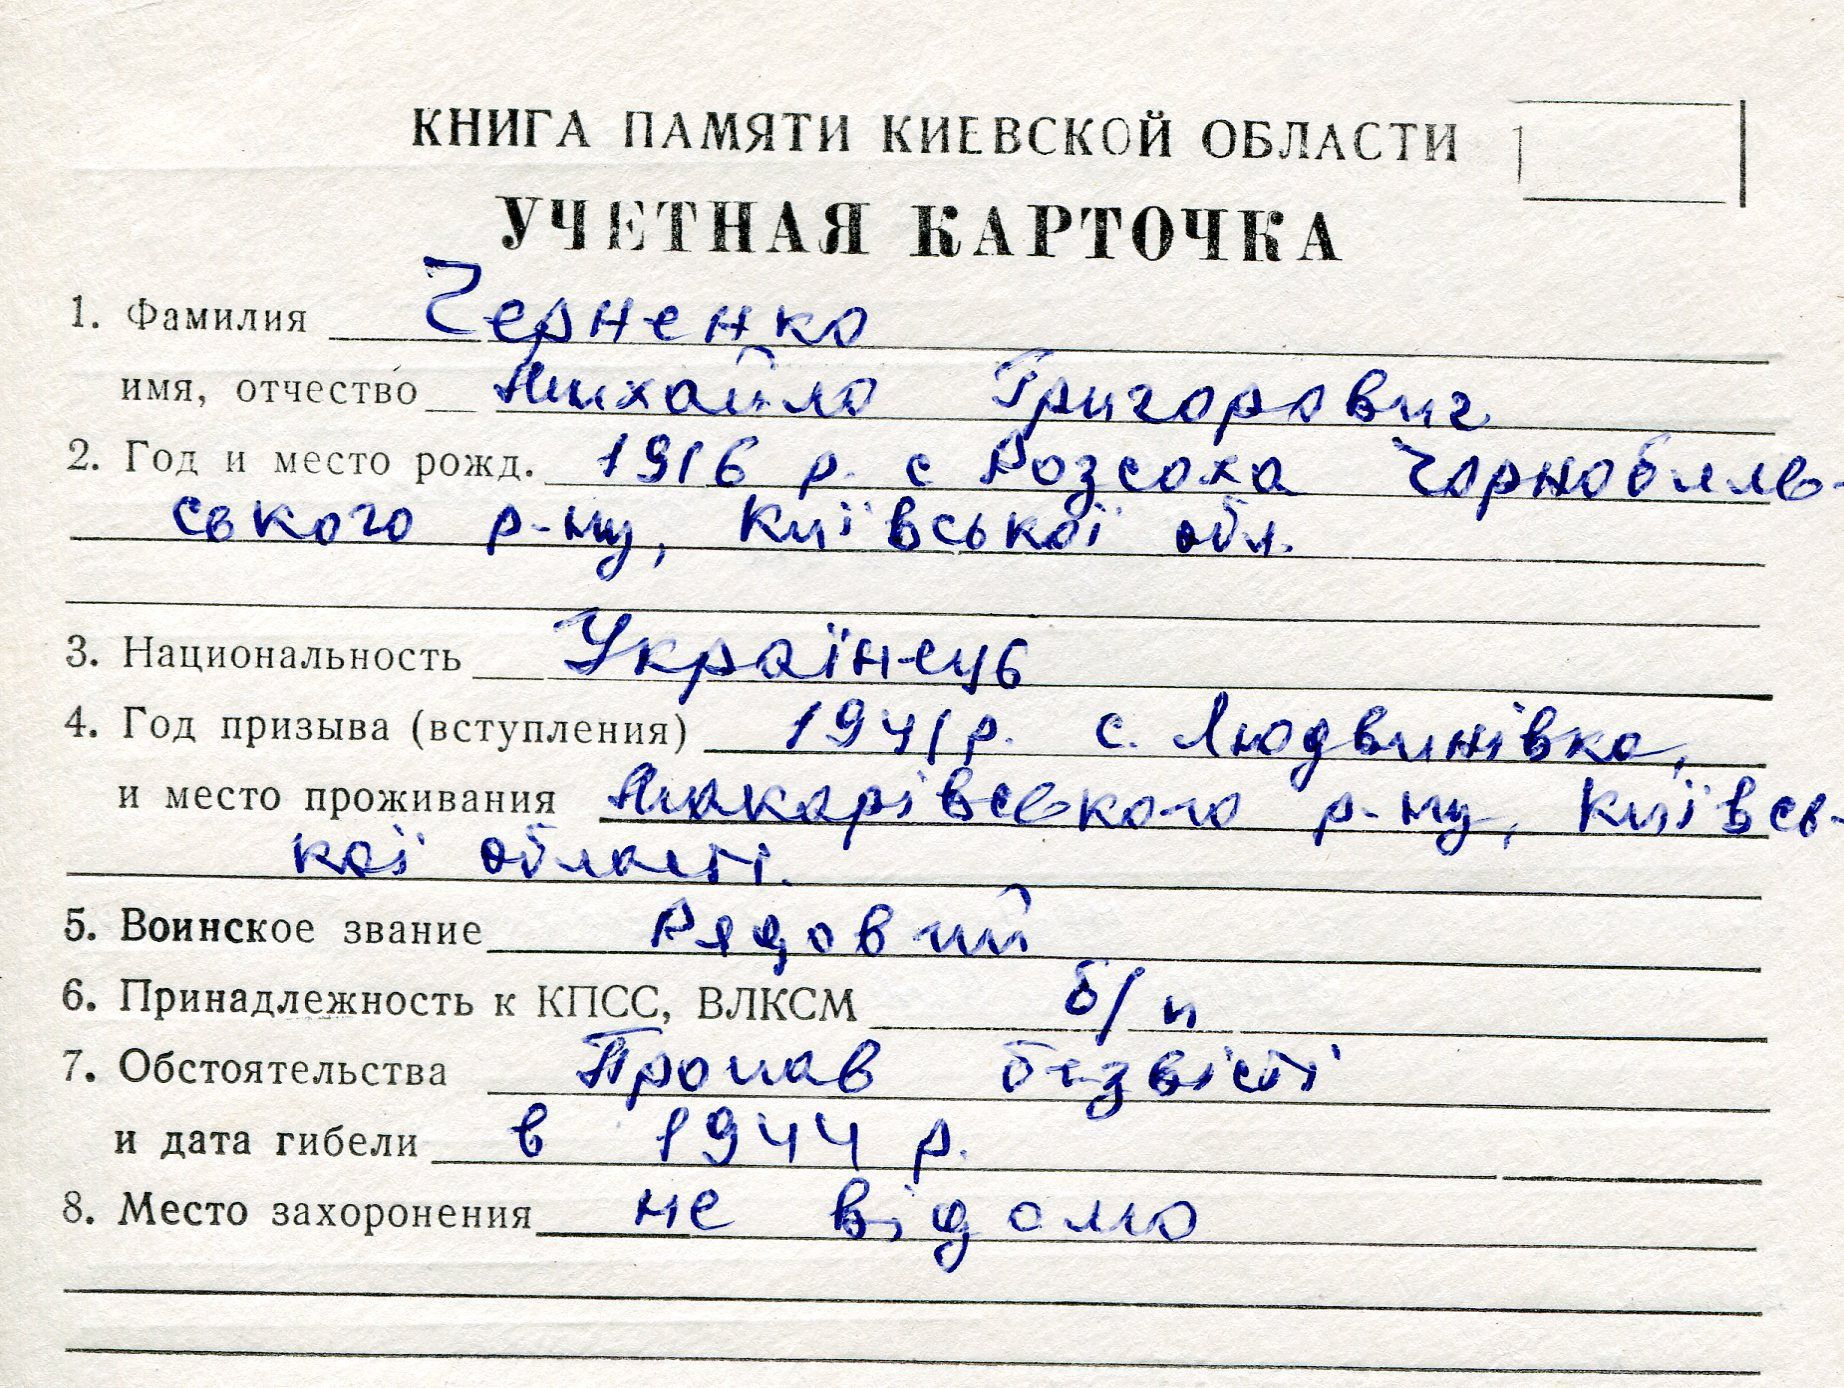 КНИГА ПАМЯТИ КИЕВСКОЙ ОБЛАСТИ
УЧЕТНАЯ КАРТОЧКА
1. Фамилия Черненко
имя, отчество Михайло Григорович
2. Год и место рожд. 1916 р. с Розсоха Чорнобиль-
ського р-ну, Київської обл.
3. Национальность Українець
4. Год призыва (вступления) 1941 р. с. Людвинівка,
и место проживания Макарівського р-ну, Київсь-
кої області.
5. Воинское звание Рядовий
6. Принадлежность к КПСС, ВЛКСМ б/п
7. Обстоятельства Пропав безвісті
и дата гибели в 1944 р.
8. Место захоронения не відомо